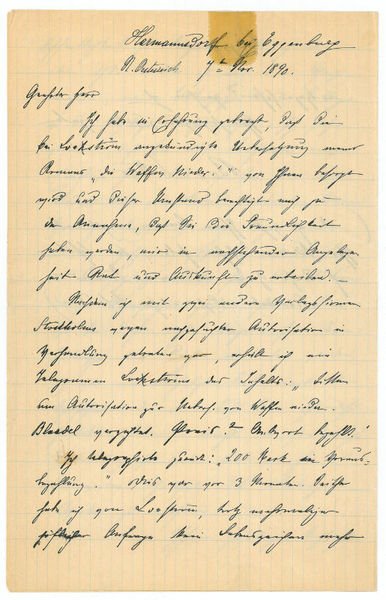 Hermannsdorf bei Eggenburg
N. Oesterreich 7te Nov. 1890.
Geehrter Herr
Ich habe in Erfahrung gebracht, daß die
bei Lockström angekündigte Uebersetzung meines
Romans „die Waffen Nieder!" von Ihnen besorgt
wird und dieser Umstand berechtigt mich zu
der Annahme, daß Sie die Freundlichkeit
haben werden, mir in nachstehender Angelegen-
heit Rat und Auskunft zu erteilen. —
Nachdem ich mit zwei andern Verlagsfirmen
Stockholms wegen nachgesuchter Autorisation in
Verhandlung getreten war, erhielt ich ein
Telegramm Lockströms des Inhalts: „bitten
um Autorisation zur Uebers. von Waffen nieder.
verzichtet. Preis? Antwort bezahlt."
Ich telegraphirte zurück: „200 Mark in Voraus-
bezahlung." Dies war vor 3 Monaten. Seither
habe ich von Lockström, trotz mehrmaliger
Anfrage kein Lebenszeichen mehr